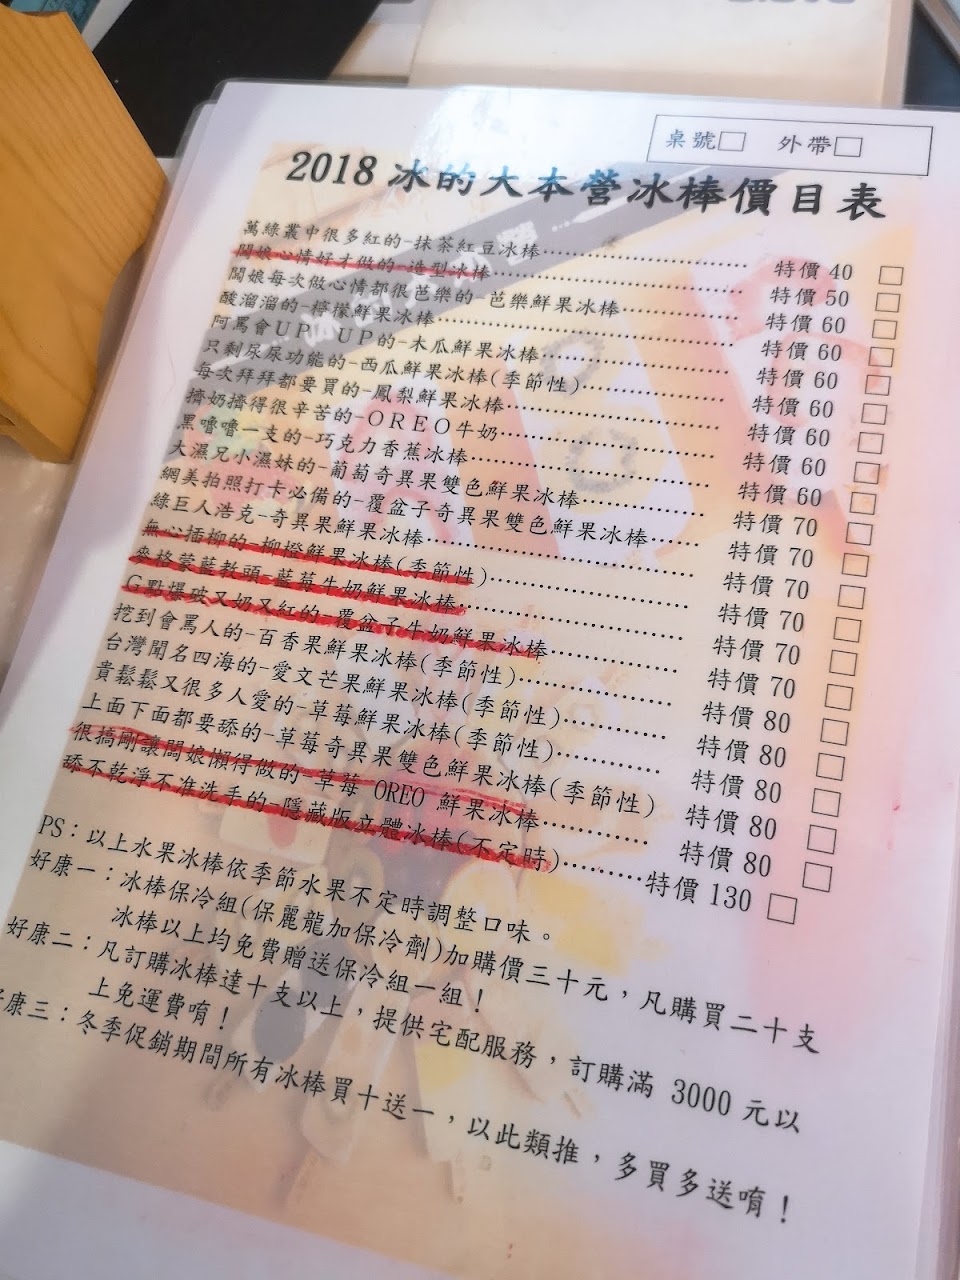 桌號□ 外帶□
2018冰的大本營冰棒價目表
萬綠叢中很多紅的-抹茶紅豆冰棒 特價 40 □
闆娘心情好才做的-造型冰棒 特價 50 □
闆娘每次做心情都很芭樂的-芭樂鮮果冰棒 特價 60 □
酸溜溜的-檸檬鮮果冰棒 特價 60 □
阿罵會UP UP的-木瓜鮮果冰棒 特價 60 □
只剩尿尿功能的-西瓜鮮果冰棒(季節性) 特價 60 □
每次拜拜都要買的-鳳梨鮮果冰棒 特價 60 □
擠奶擠得很辛苦的-OREO牛奶 特價 60 □
黑嚕嚕一支的-巧克力香蕉冰棒 特價 60 □
大濕兄小濕妹的-葡萄奇異果雙色鮮果冰棒 特價 70 □
網美拍照打卡必備的-覆盆子奇異果雙色鮮果冰棒 特價 70 □
綠巨人浩克-奇異果鮮果冰棒 特價 70 □
無心插柳的-柳橙鮮果冰棒(季節性) 特價 70 □
麥格蒙藍教頭-藍莓牛奶鮮果冰棒 特價 70 □
G點爆破又奶又紅的-覆盆子牛奶鮮果冰棒 特價 70 □
挖到會罵人的-百香果鮮果冰棒(季節性) 特價 80 □
台灣聞名四海的-愛文芒果鮮果冰棒(季節性) 特價 80 □
貴鬆鬆又很多人愛的-草莓鮮果冰棒(季節性) 特價 80 □
上面下面都要舔的-草莓奇異果雙色鮮果冰棒(季節性) 特價 80 □
很搞剛讓闆娘懶得做的-草莓 OREO 鮮果冰棒 特價 80 □
舔不乾淨不准洗手的-隱藏版立體冰棒(不定時) 特價 130 □
PS：以上水果冰棒依季節水果不定時調整口味。
好康一：冰棒保冷組(保麗龍加保冷劑)加購價三十元，凡購買二十支
冰棒以上均免費贈送保冷組一組！
好康二：凡訂購冰棒達十支以上，提供宅配服務，訂購滿 3000 元以
上免運費唷！
好康三：冬季促銷期間所有冰棒買十送一，以此類推，多買多送唷！